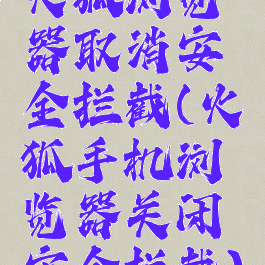 火狐浏览
器取消安
全拦截(火
狐手机浏
览器关闭
安全拦截)